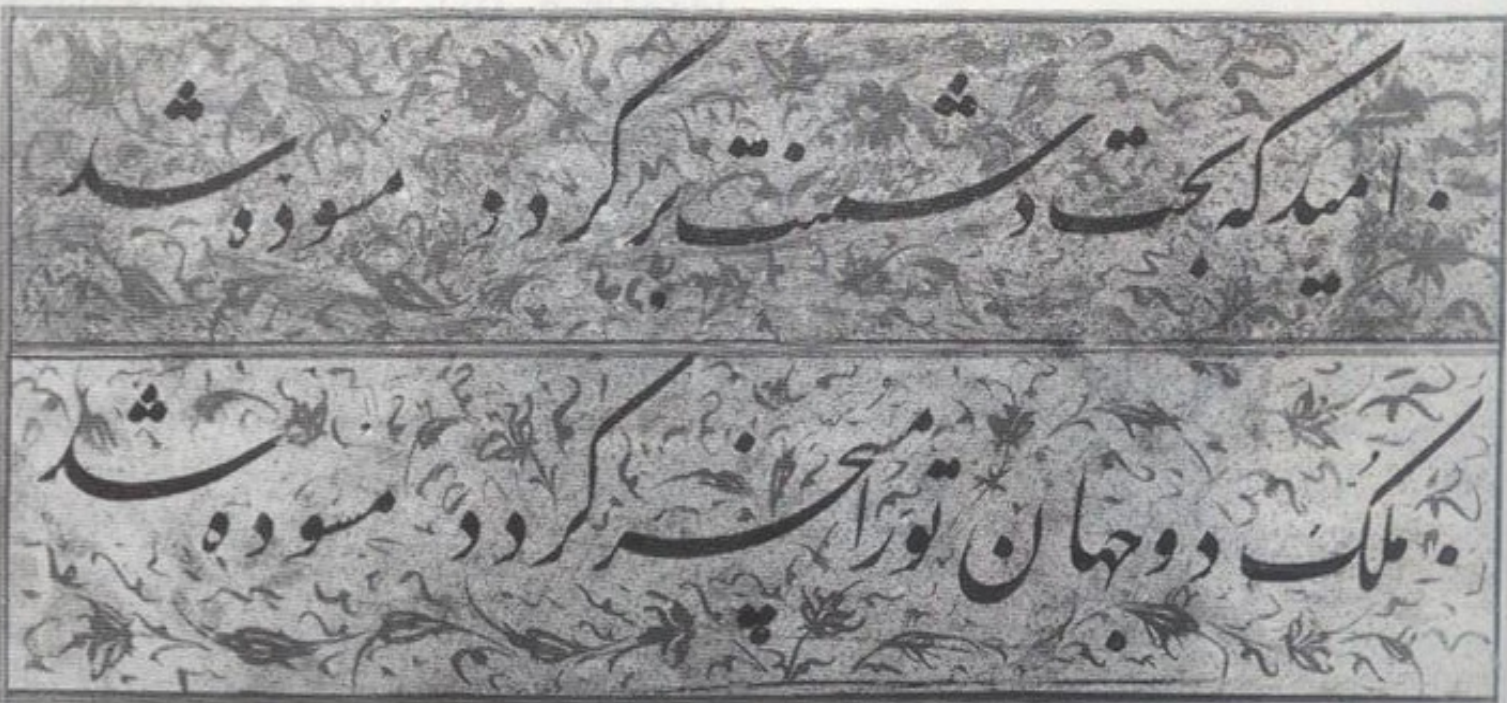 امید که بخت دشمنت برگردد مسوده شد
ملک دو جهان تو را مسخر گردد مسوده شد